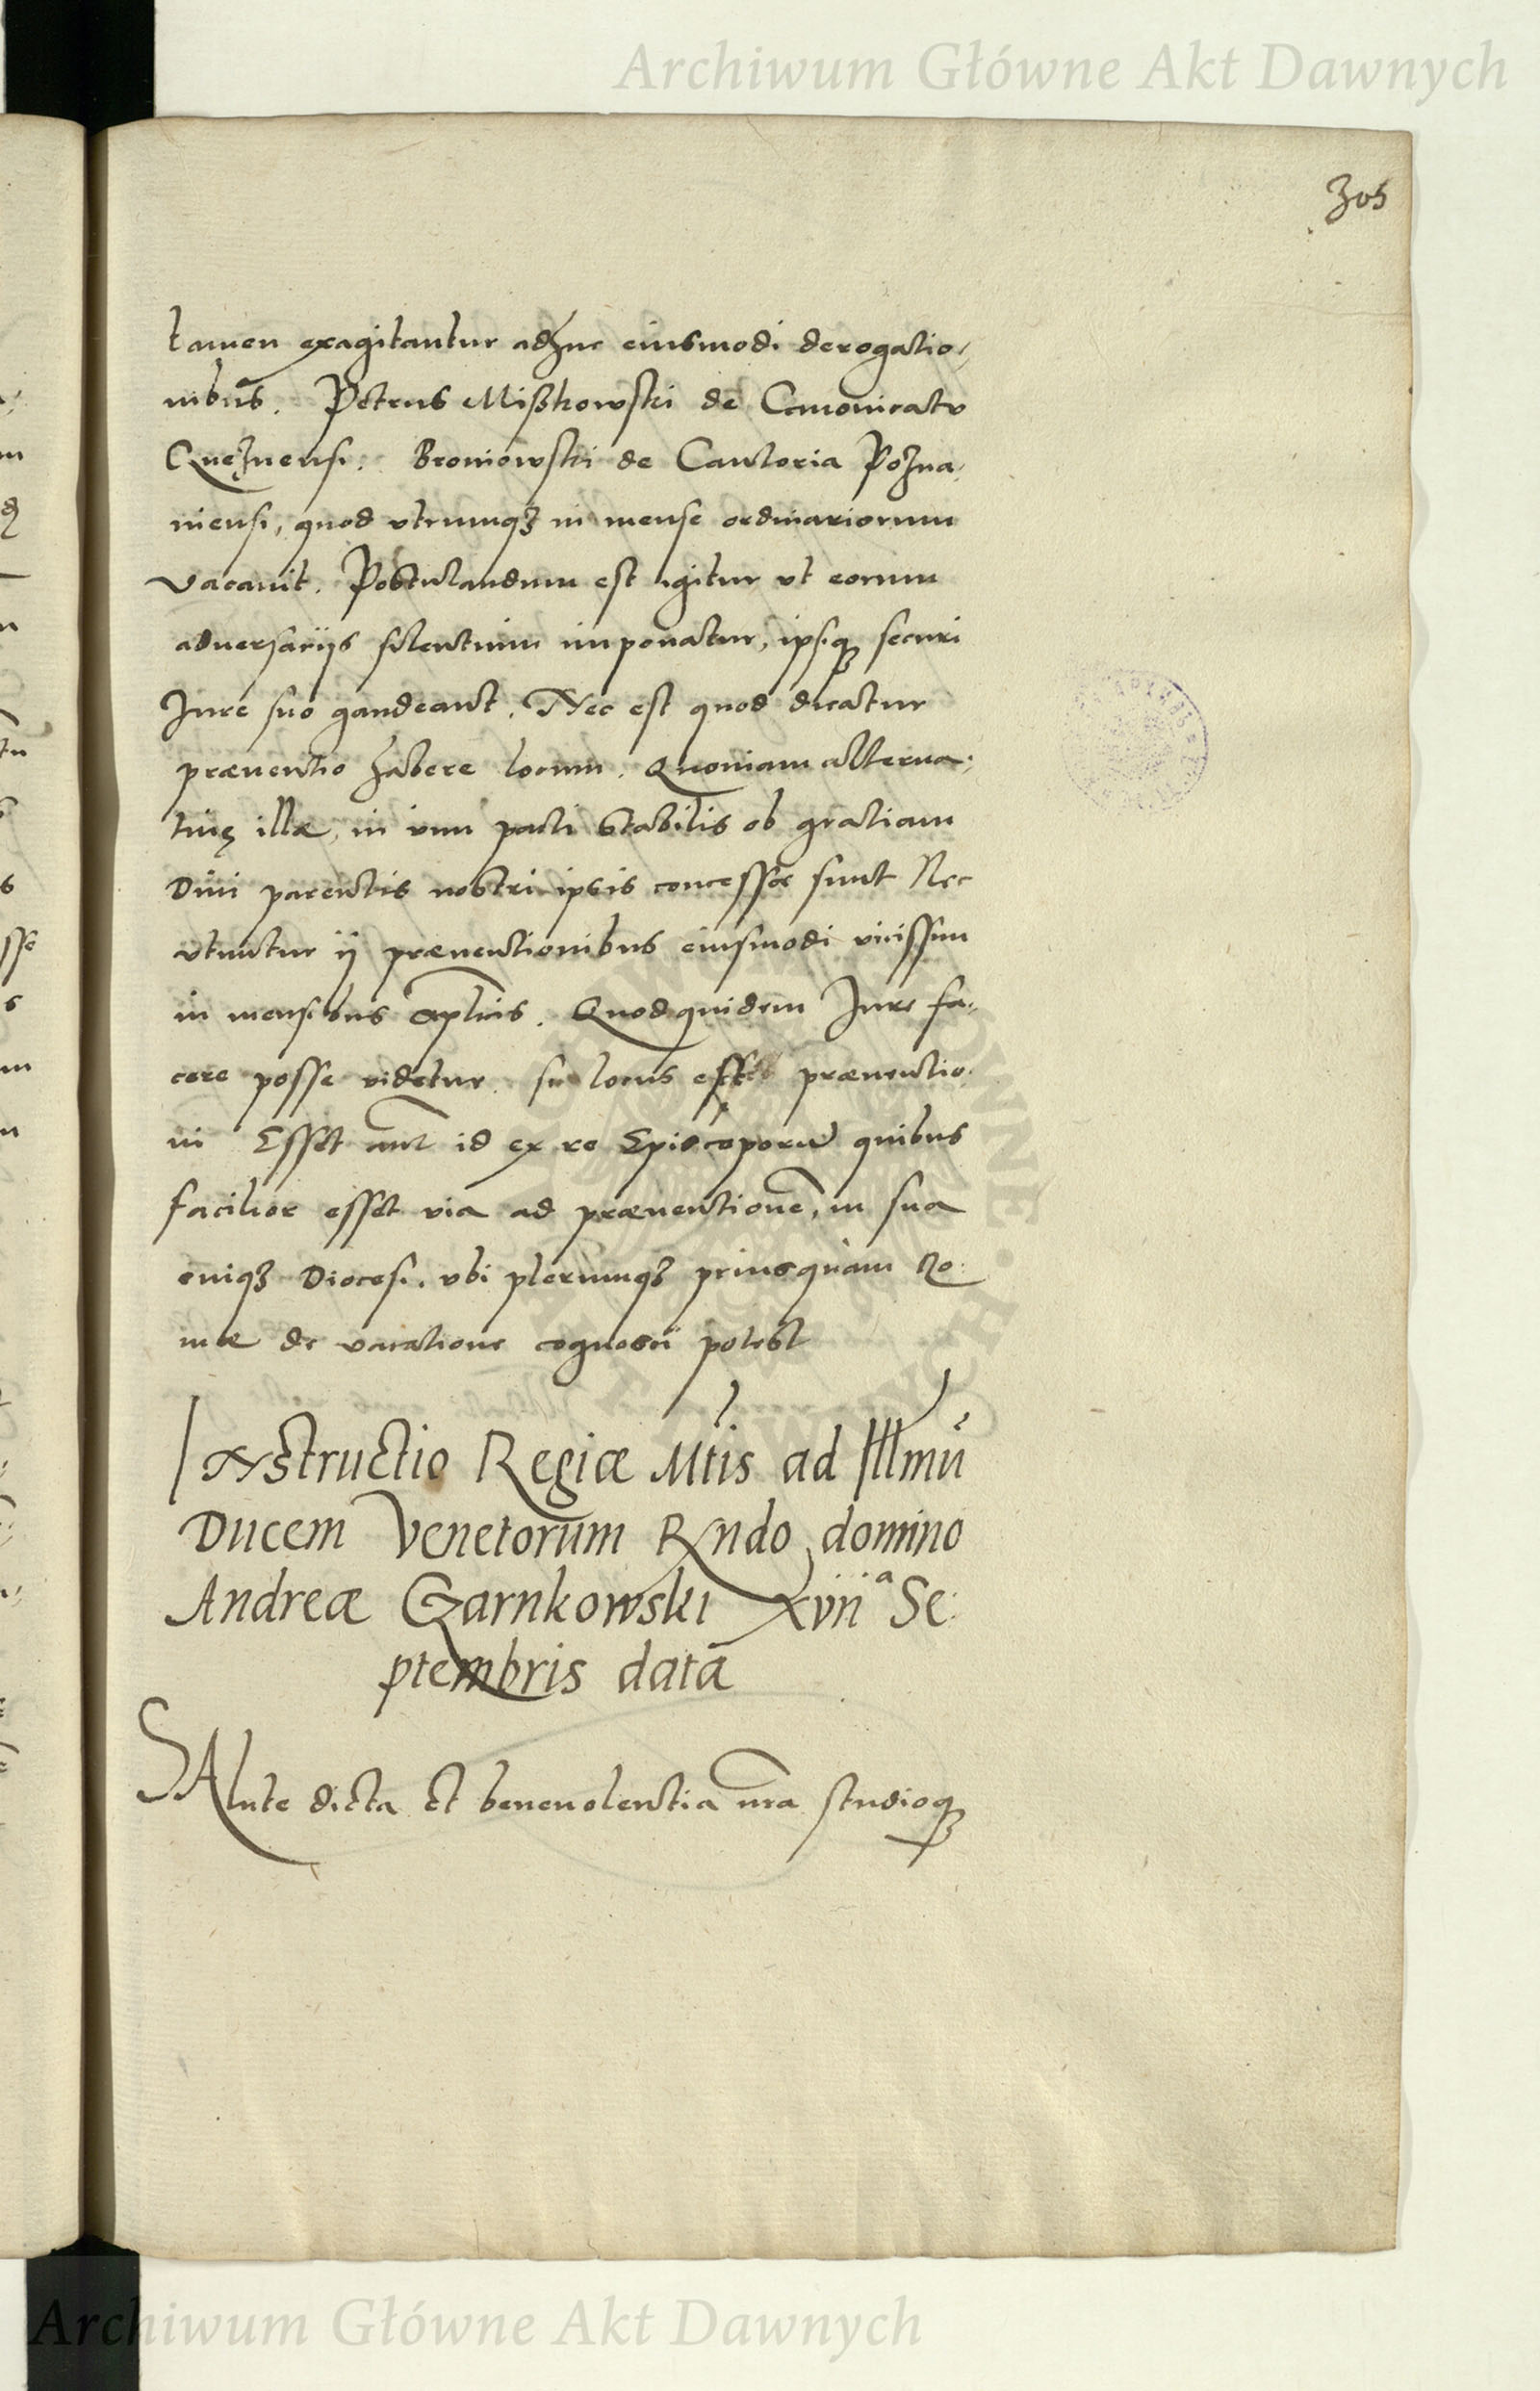 Archiwum Główne Akt Dawnych
305
tamen exagitantur adhuc eiusmodi derogatio,
nibus. Petrus Mißkowski de Canonicatu
Gneznensi. Broniowski de Cantoria Pozna,
niensi, quod vtrumqꝫ in mense ordinariorum
vacauit. Postulandum est igitur vt eorum
aduersarijs silentium imponatur, ipsiqꝫ securi
Jure suo gaudeant. Nec est quod dicatur
præuentio habere locum. Quoniam alterna,
tiuę illæ, in vim pacti stabilis ob gratiam
Diui parentis nostri ipsis concessæ sunt Nec
vtuntur ij præuentionibus eiusmodi vicissim
in mensibus aplicis. Quod quidem Jure fa,
cere posse videtur. si locus esset præuentio,
ni Esset aut id ex re Episcoporū quibus
facilior esset via ad præuentionē, in sua
cuiqꝫ Diocesi. vbi plerumqꝫ priusquam Ro:
mæ de vacatione cognosci potest
INstructio Regiæ Mtis ad Illmū
Ducem Venetorum Rndo domino
Andreæ Czarnkowski xvii a Se:
ptembris data
SAlute dicta Et beneuolentia nra studioqꝫ
Archiwum Główne Akt Dawnych